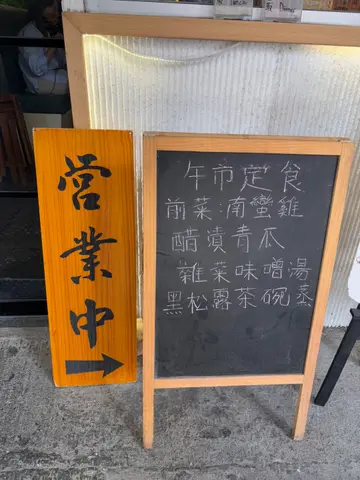 営業中
午市定食
前菜:南蠻雞
醋漬青瓜
雜菜味噌湯
黑松露茶碗蒸